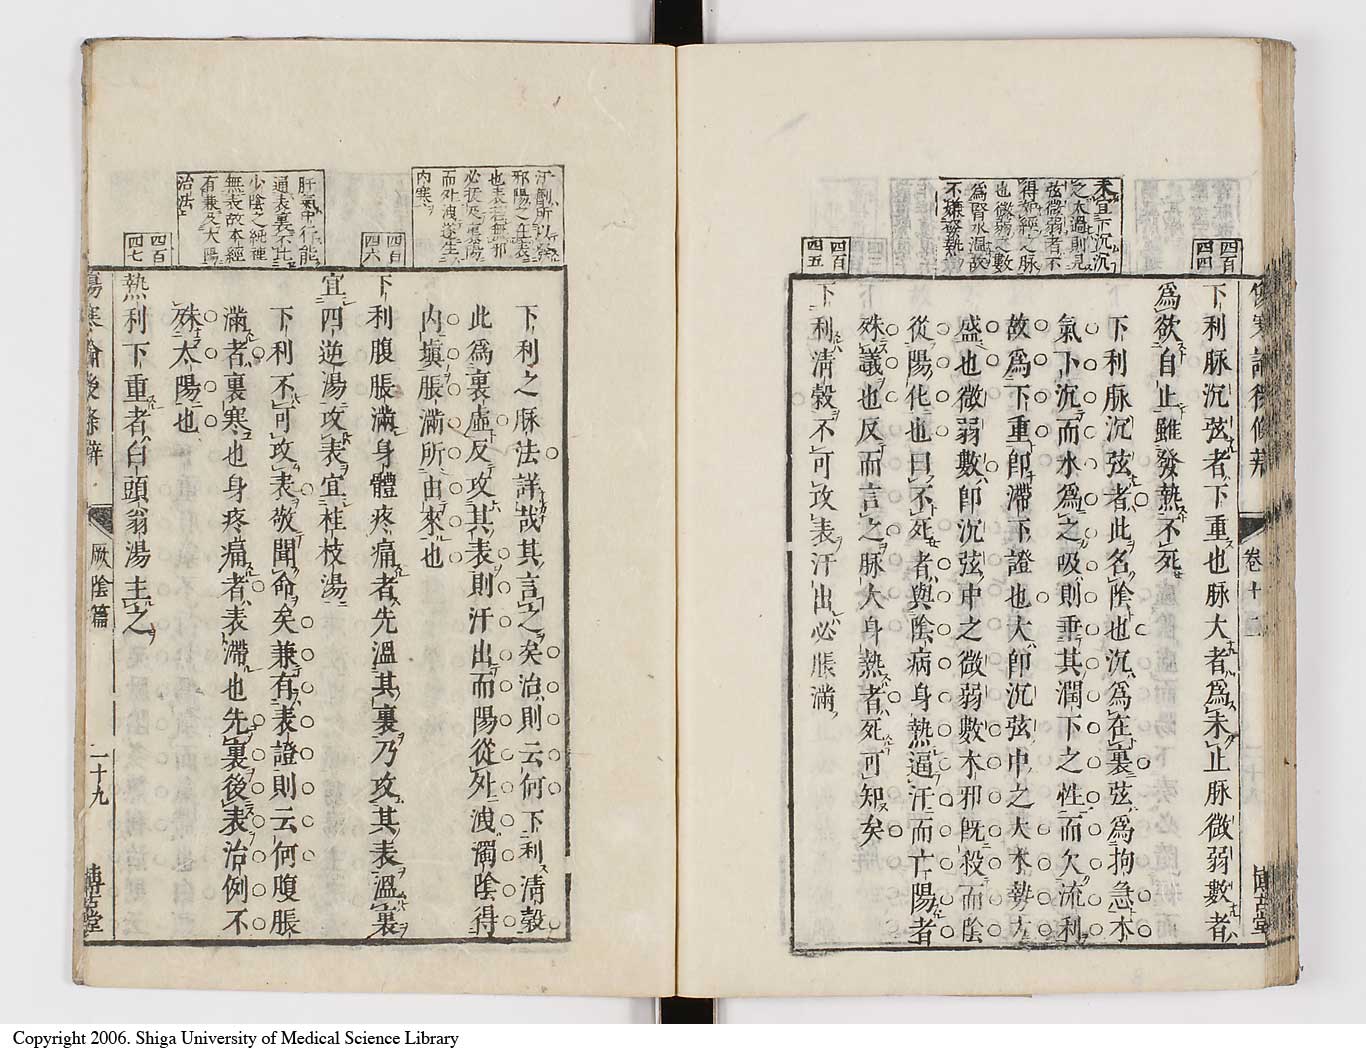 四百
四四
下利脉沉弦者下重也脉大者爲未止脉微弱數者
爲欲自止雖發熱不死
未宜下沉沉
之太過則見
弦微弱者不
得
也微弱之數
爲腎水溫故
不嫌發熱
下利脉沉弦者此名陰也沉爲在裏弦爲拘急木
氣下沉而水爲之吸則垂其潤下之性而欠流利
故爲下重卽滯下證也大卽沉弦中之大水勢大
盛也微弱數卽沉弦中之微弱數木邪旣殺而陰
從陽化也曰不死者與陰病身熱逼汗而亡陽者
殊議也反而言之脉大身熱者死可知矣
四百
四五
下利淸穀不可攻表汗出必脹滿
邪陽之在表
也表若無邪
必
而外洩遂生
內寒
下利之脉法詳哉其言之矣治則云何下利淸穀
此爲裏虛反攻其表則汗出而陽從外洩濁陰得
內塡脹滿所由來也
四百
四六
下利腹脹滿身體疼痛者先溫其裏乃攻其表溫裏
宜四逆湯攻表宜桂枝湯
肝氣中行能
通表裏不比
少陰之純裡
無表故本經
有兼及太陽
治法
下利不可攻表敬聞命矣兼有表證則云何腹脹
滿者裏寒也身疼痛者表滯也先裏後表治例不
殊太陽也
四百
四七
熱利下重者白頭翁湯主之
傷寒論後條辨
厥陰篇
二十九
博古堂
卷十